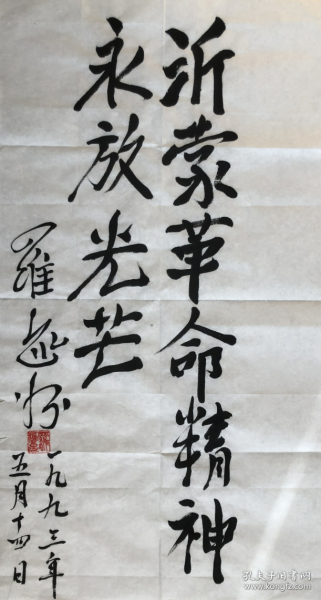 沂蒙革命精神
永放光芒
罗
一九九三年
五月十四日
孔夫子旧书网